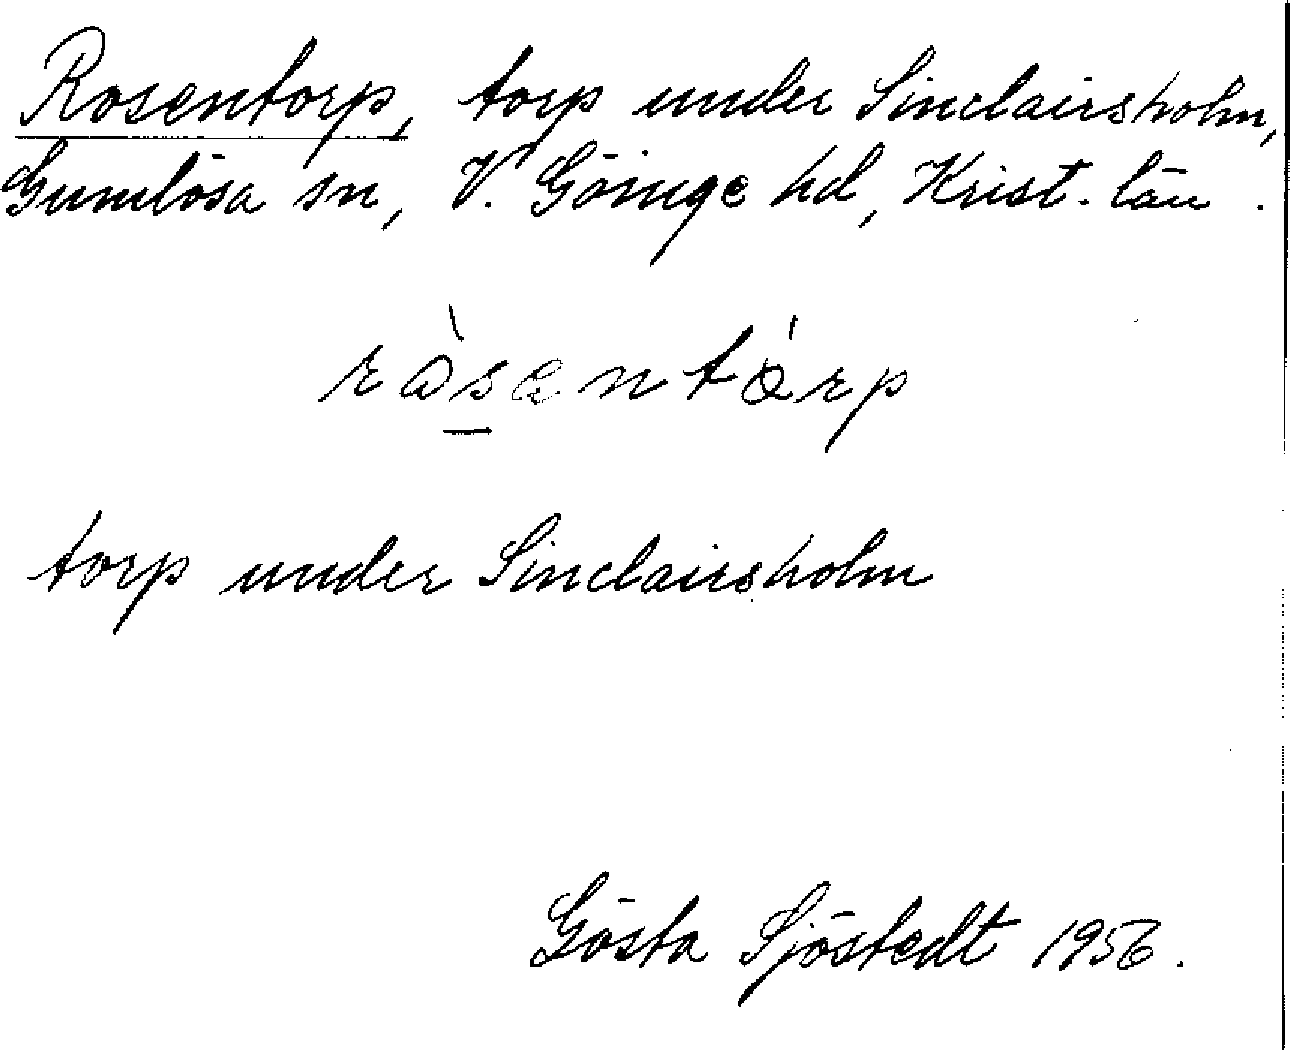 Rosentorp, torp under Sinclairsholm,
Gumlösa sn, V. Göinge hd, Krist. län.
ròsentórp
torp under Sinclairsholm
Gösta Sjöstedt 1956.